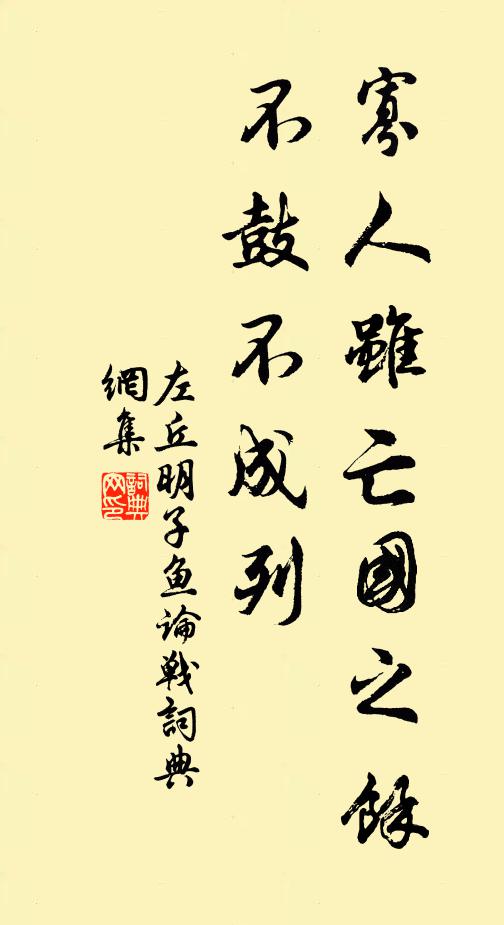 寡人雖亡國之餘
不鼓不成列
左丘明子魚論戰詞典
網集
詞典
网印